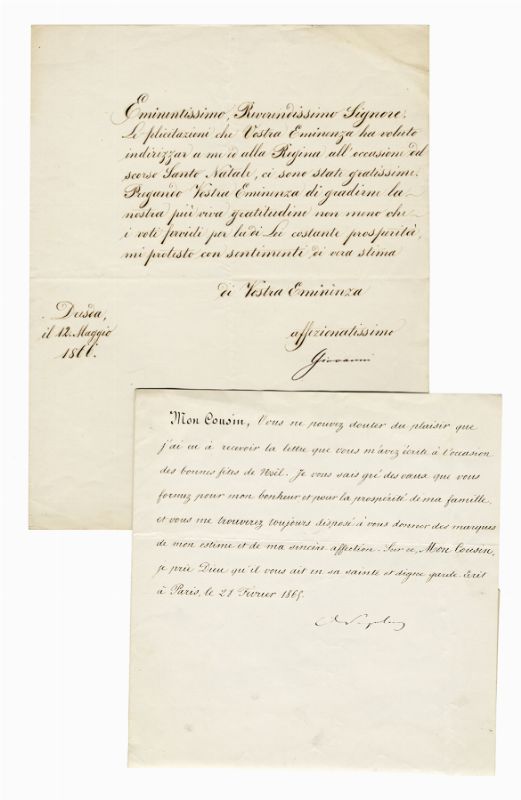 Eminentissimo, Riverendissimo Signore.
Le felicitazioni che Vostra Eminenza ha voluto
indirizzar a me ed alla Regina all'occasione del
scorso Santo Natale, ci sono state gratissime.
Pregando Vostra Eminenza di gradirne la
nostra più viva gratitudine non meno che
i voti fervidi per la di Lei costante prosperità,
mi protesto con sentimenti di vera stima
di Vostra Eminenza
Dresda,
il 12. Maggio
1866.
affezionatissimo
Giovanni
Mon Cousin, Vous ne pouvez douter du plaisir que
j'ai eu à recevoir la lettre que vous m'avez écrite à l'occasion
des bonnes fêtes de Noël. Je vous sais gré des vœux que vous
formez pour mon bonheur et pour la prospérité de ma famille
et vous me trouverez toujours disposé à vous donner des marques
de mon estime et de ma sincère affection. Sur ce, Mon Cousin,
je prie Dieu qu'il vous ait en sa sainte et digne garde. Écrit
à Paris, le 21 Février 1865.